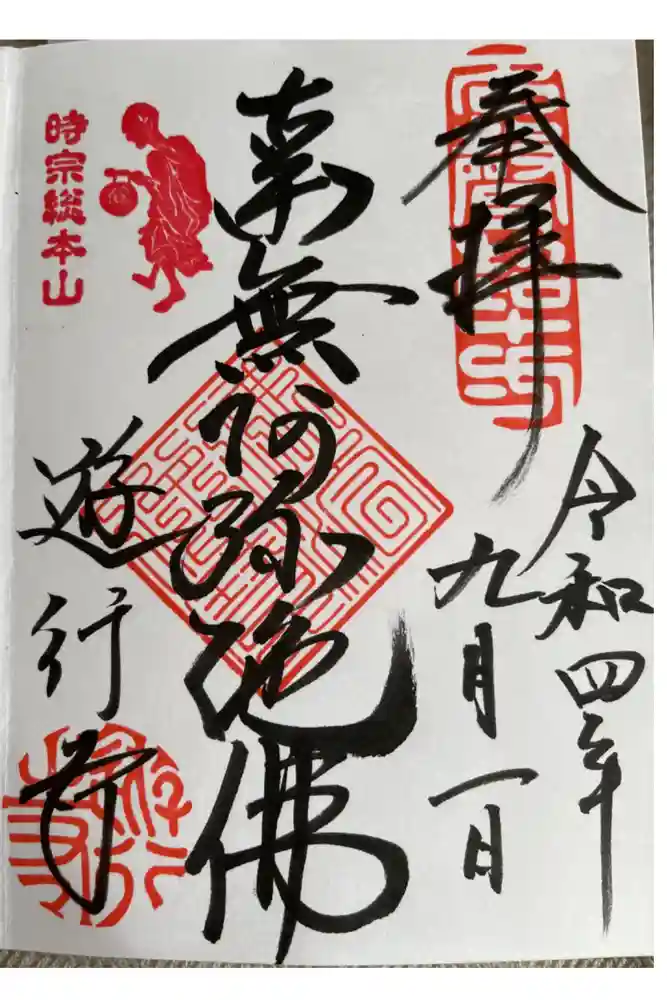 奉拝
令和四年
九月一日
南無阿弥陀佛
時宗総本山
遊行寺